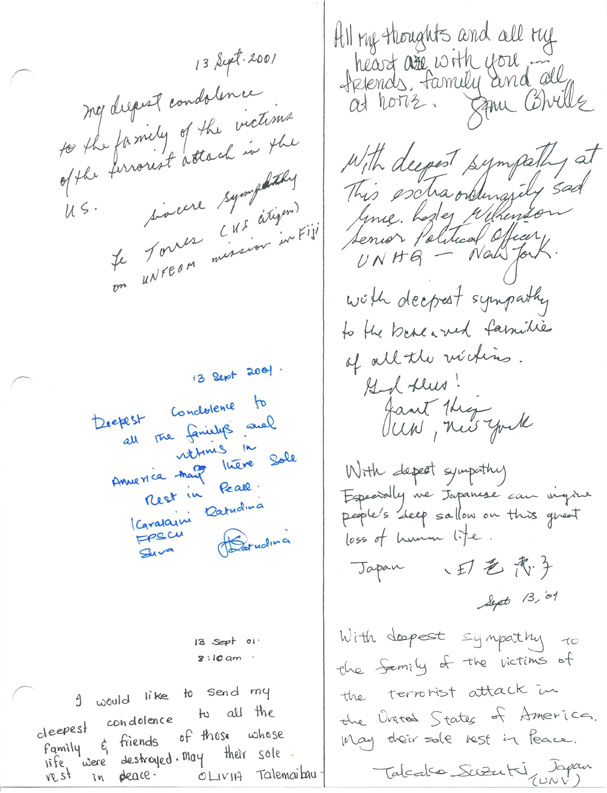 13 Sept. 2001
My deepest condolence
to the family of the victims
of the terrorist attack in the
U.S.
Sincere sympathy
Fe Torres (US citizen)
on UNFEOM mission in Fiji
13 Sept 2001.
Deepest Condolence to
all the familys and
victims in
America may there Sole
Rest in Peace.
Ratudina
FPSCU
Suva Ratudina
13 Sept 01.
8:10am.
I would like to send my
deepest condolence to all the
family & friends of those whose
life were destroyed. May their sole
rest in peace. OLIVIA Talemaibau
All my thoughts and all my
heart are with you ...
friends, family and all
at home.
With deepest sympathy at
this extraordinarily sad
time. Wilkinson
Senior Political Officer,
UNHQ – New York.
With deepest sympathy
to the bereaved families
of all the victims.
God bless!
Janet
UN, New York
With depest sympathy
Especially we Japanese can
people's deep sallow on this great
loss of human life.
Japan 子
Sept 13, '01
With deepest sympathy to
the family of the victims of
the terrorist attack in
the United States of America.
May their sole rest in Peace.
Takako Suzuki Japan
(UNV)